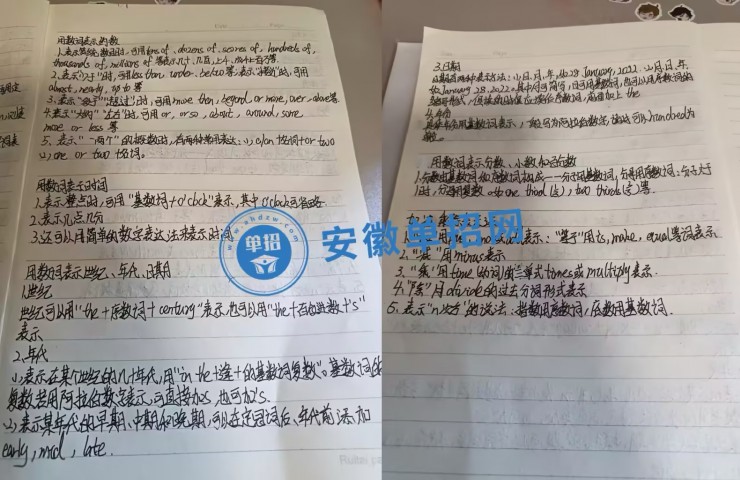 用数词表示约数
1.表示笼统数量时,可用tens of, dozens of, scores of, hundreds of,
thousands of, millions of 等表示几十,几百,上千,成千上百万等.
2.表示"少于"时,可用less than, under, below等,表示"接近"时,可用
almost, nearly, up to 等
3.表示"多于""超过"时,可用more then, beyond, or more, over, above等.
4.表示"大约""左右"时,可用 or, or so, about, around, some
more or less 等
5.表示"一两个"的概数时,有两种单元表达:(1)a/an 名词+or two
(2)one or two+名词.
用数词表示时间
1.表示整点时,可用"基数词+o'clock"表示,其中o'clock可省略.
2.表示几点几分
3.还可以用简单的数字表达法来表示时间
用数词表示世纪、年代、日期
1.世纪
世纪可以用"the+序数词+century"表示,也可以用"the+百位进数+'s"
表示
2.年代
(1)表示在某个世纪的几十年代,用"in the+逢十的基数词复数"。基数词的
复数若用阿拉伯数字表示,可直接加s,也可加's.
(2)表示某年代的早期、中期和晚期,可以在定冠词后、年代前添加
early, mid, late.
3.日期
日期有两种表达方法:(1)日,月,年,如28 January, 2022. (2)月,日,年,
如January 28, 2022.
the
hundred
用数词表示分数、小数和百分数
1.分数由基数词和序数词构成——分子用基数词,分母用序数词;分子大于
1时,分母用复数 如one third(), two thirds()等.
表示;"等于"用is, make, equal等词表示
2."减"用minus表示
3."乘"用time的第三单式times或multiply表示.
4."除"用divide的过去分词形式表示
5.表示"n次方"的说法:指数用序数词,底数用基数词.
www.ahdzw.com
单招
安徽单招网